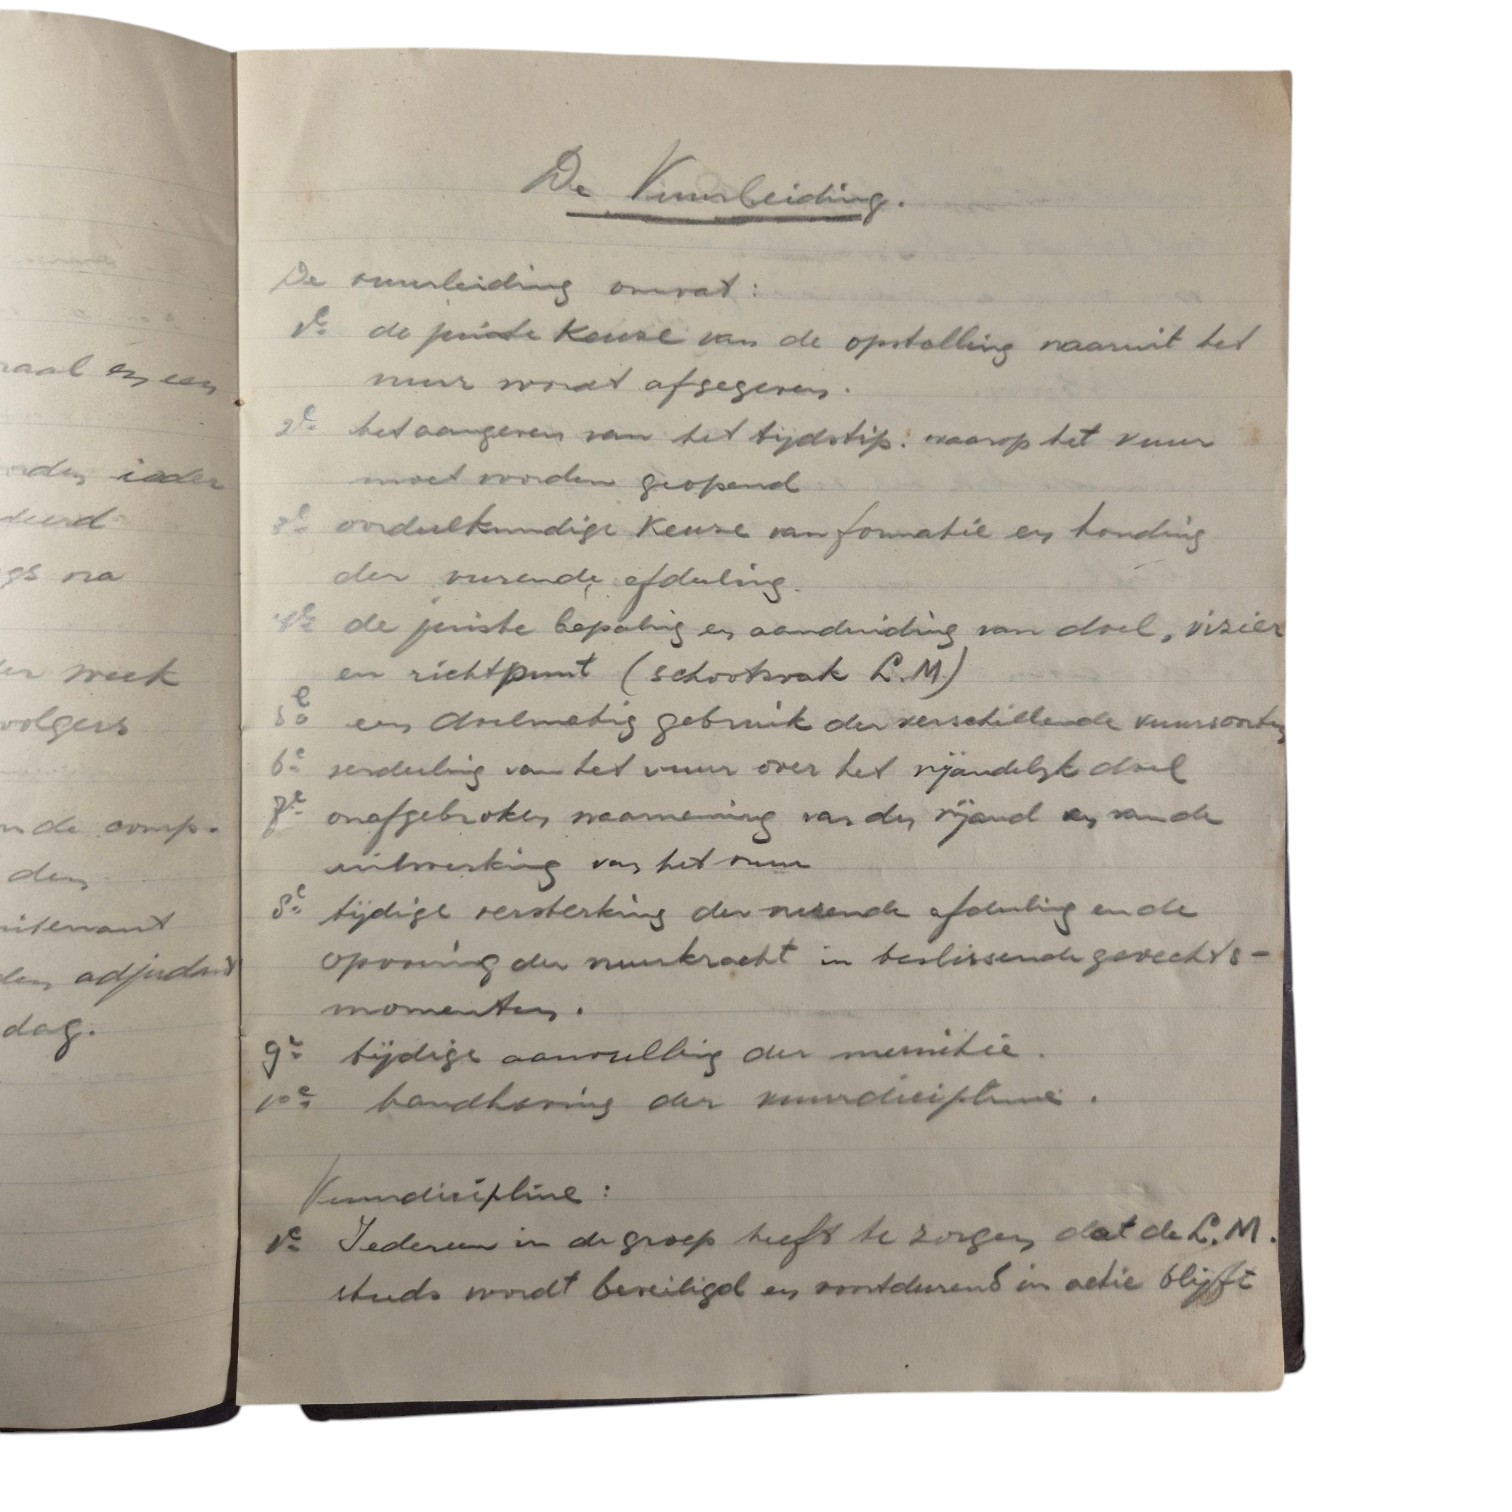 raal en een
orden ieder
deerd
gs na
der week
volgers
nde comp.
den
uitenant
den adjudant
dag.
De Vuurleiding.
De vuurleiding omvat:
1e de juiste keuze van de opstelling waaruit het
vuur wordt afgegeven.
2e het aangeven van het tijdstip: waarop het vuur
moet worden geopend
3e oordeelkundige keuze van formatie en houding
der vurende afdeling.
4e de juiste bepaling en aanduiding van doel, vizier
en richtpunt (schootsvak L.M.)
5e een doelmatig gebruik der verschillende vuursoorten
6e verdeeling van het vuur over het vijandelijk doel
7e onafgebroken waarneming van den vijand en van de
uitwerking van het vuur
8e tijdige versterking der vurende afdeling en de
opvoering der vuurkracht in beslissende gevechts-
momenten.
9e tijdige aanvulling der munitie.
10e handhaving der vuurdiscipline.
Vuurdiscipline:
1e Iedereen in de groep heeft te zorgen dat de L.M.
steeds wordt beveiligd en voortdurend in actie blijft